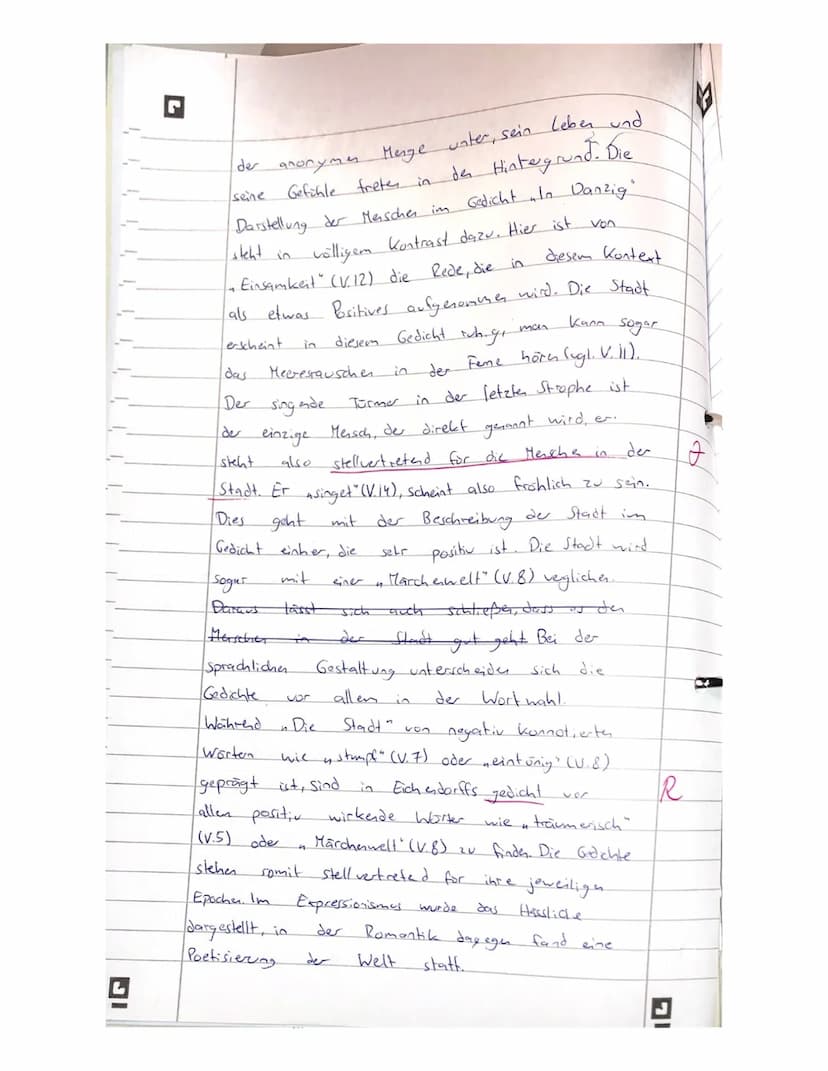 der anonymen Menge unter, sein Leben und
seine Gefühle treten in den Hintergrund. Die
Darstellung der Menschen im Gedicht „In Danzig"
steht in völligem Kontrast dazu. Hier ist von
„Einsamkeit" (V.12) die Rede, die in diesem Kontext
als etwas Positives aufgenommen wird. Die Stadt
erscheint in diesem Gedicht ruhig, man kann sogar
das Meeresrauschen in der Ferne hören (vgl. V.11).
Der singende Türmer in der letzten Strophe ist
der einzige Mensch, der direkt genannt wird, er
steht also stellvertretend für die Menschen in der
Stadt. Er „singet" (V.14), scheint also fröhlich zu sein.
Dies geht mit der Beschreibung der Stadt im
Gedicht einher, die sehr positiv ist. Die Stadt wird
sogar mit einer „Märchenwelt" (V.8) veglichen.
Daraus lässt sich auch schließen, dass es den
Menschen in der Stadt gut geht Bei der
sprachlichen Gestaltung unterscheiden sich die
Gedichte vor allem in der Wortwahl.
Während „Die Stadt" von negativ konnotierten
Wörtern wie „stumpf" (V.7) oder „eintönig" (V.8)
geprägt ist, sind in Eichendorffs gedicht vor
R
allem positiv wirkende Wörter wie „träumerisch"
(V.5) oder „Märchenwelt" (V.8) zu finden. Die Gedichte
stehen somit stellvertreted für ihre jeweiligen
Epochen. Im Expressionismus wurde das Hässliche
dargestellt, in der Romantik dagegen fand eine
Poetisierung der Welt statt.